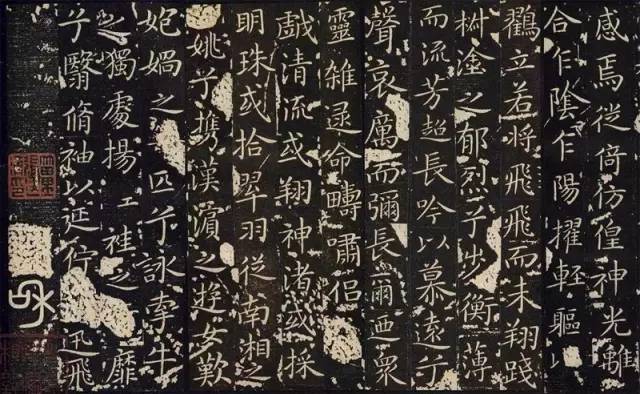 感焉徙倚仿徨神光離
合乍陰乍陽擢輕軀以
鶴立若將飛飛而未翔踐
椒塗之郁烈兮步衡薄
而流芳超長吟以慕遠兮
聲哀厲而彌長爾迺衆
靈雜遝命疇嘯侣
戲清流或翔神渚或採
明珠或拾翠羽從南湘之
姚兮携漢濱之遊女歎
媧之匹兮詠牽牛
之獨處揚袿之靡
兮翳脩袖以延佇迅飛